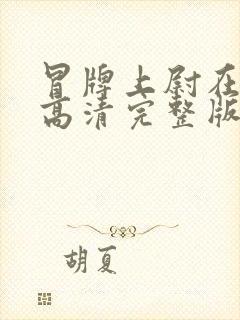 冒牌上尉在
高清完整版
胡夏